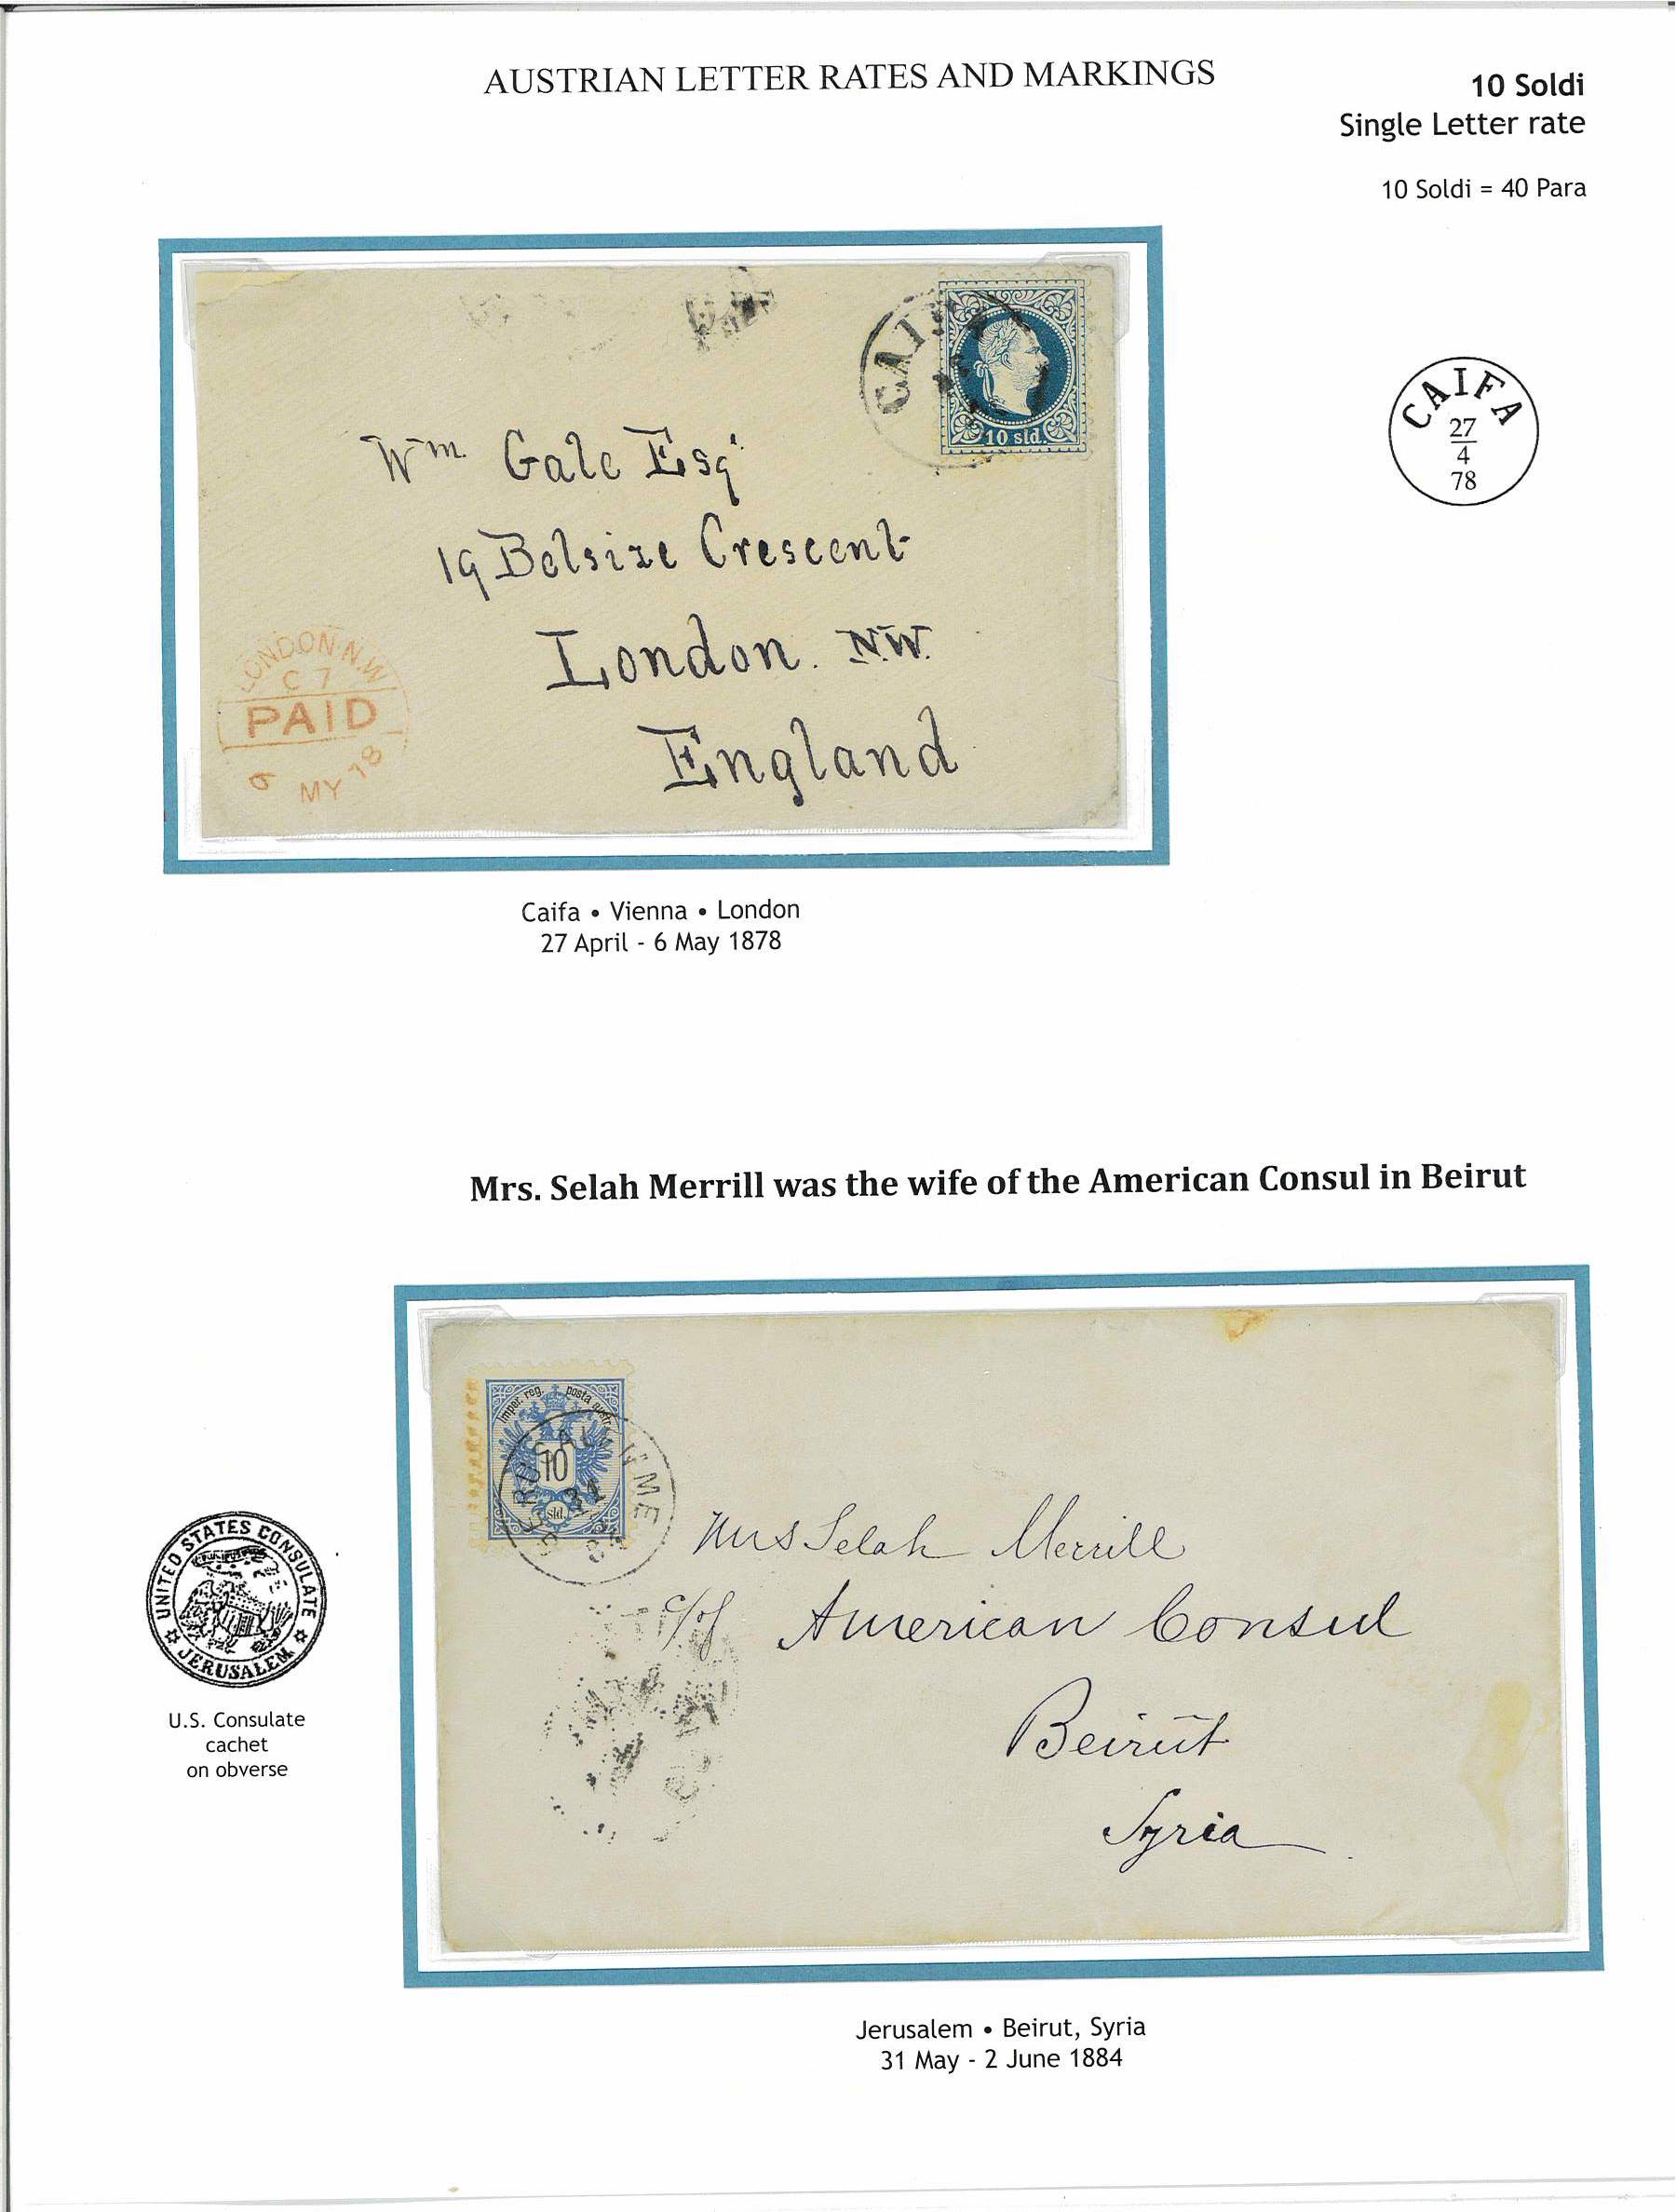 AUSTRIAN LETTER RATES AND MARKINGS
10 Soldi
Single Letter rate
10 Soldi = 40 Para
CAI
10 sld.
Wm. Gale Esqr
19 Belsize Crescent
London. N.W.
England
LONDON·N.W
C 7
PAID
6 MY 78
CAIFA
27
4
78
Caifa • Vienna • London
27 April - 6 May 1878
Mrs. Selah Merrill was the wife of the American Consul in Beirut
Imper. reg. posta austr.
10
sld.
GERUSALEMME
31
Mrs Selah Merrill
c/o American Consul
Beirut
Syria
UNITED STATES CONSULATE
JERUSALEM
U.S. Consulate
cachet
on obverse
Jerusalem • Beirut, Syria
31 May - 2 June 1884